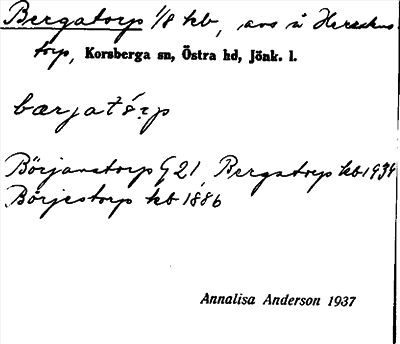 Bergatorp 1/8 kb, avs å Herrkus-
torp, Korsberga sn, Östra hd, Jönk. l.
bærjatórp
Börjanstorp G 21, Bergstorp kb 1934
Börjestorp kb 1886
Annalisa Anderson 1937